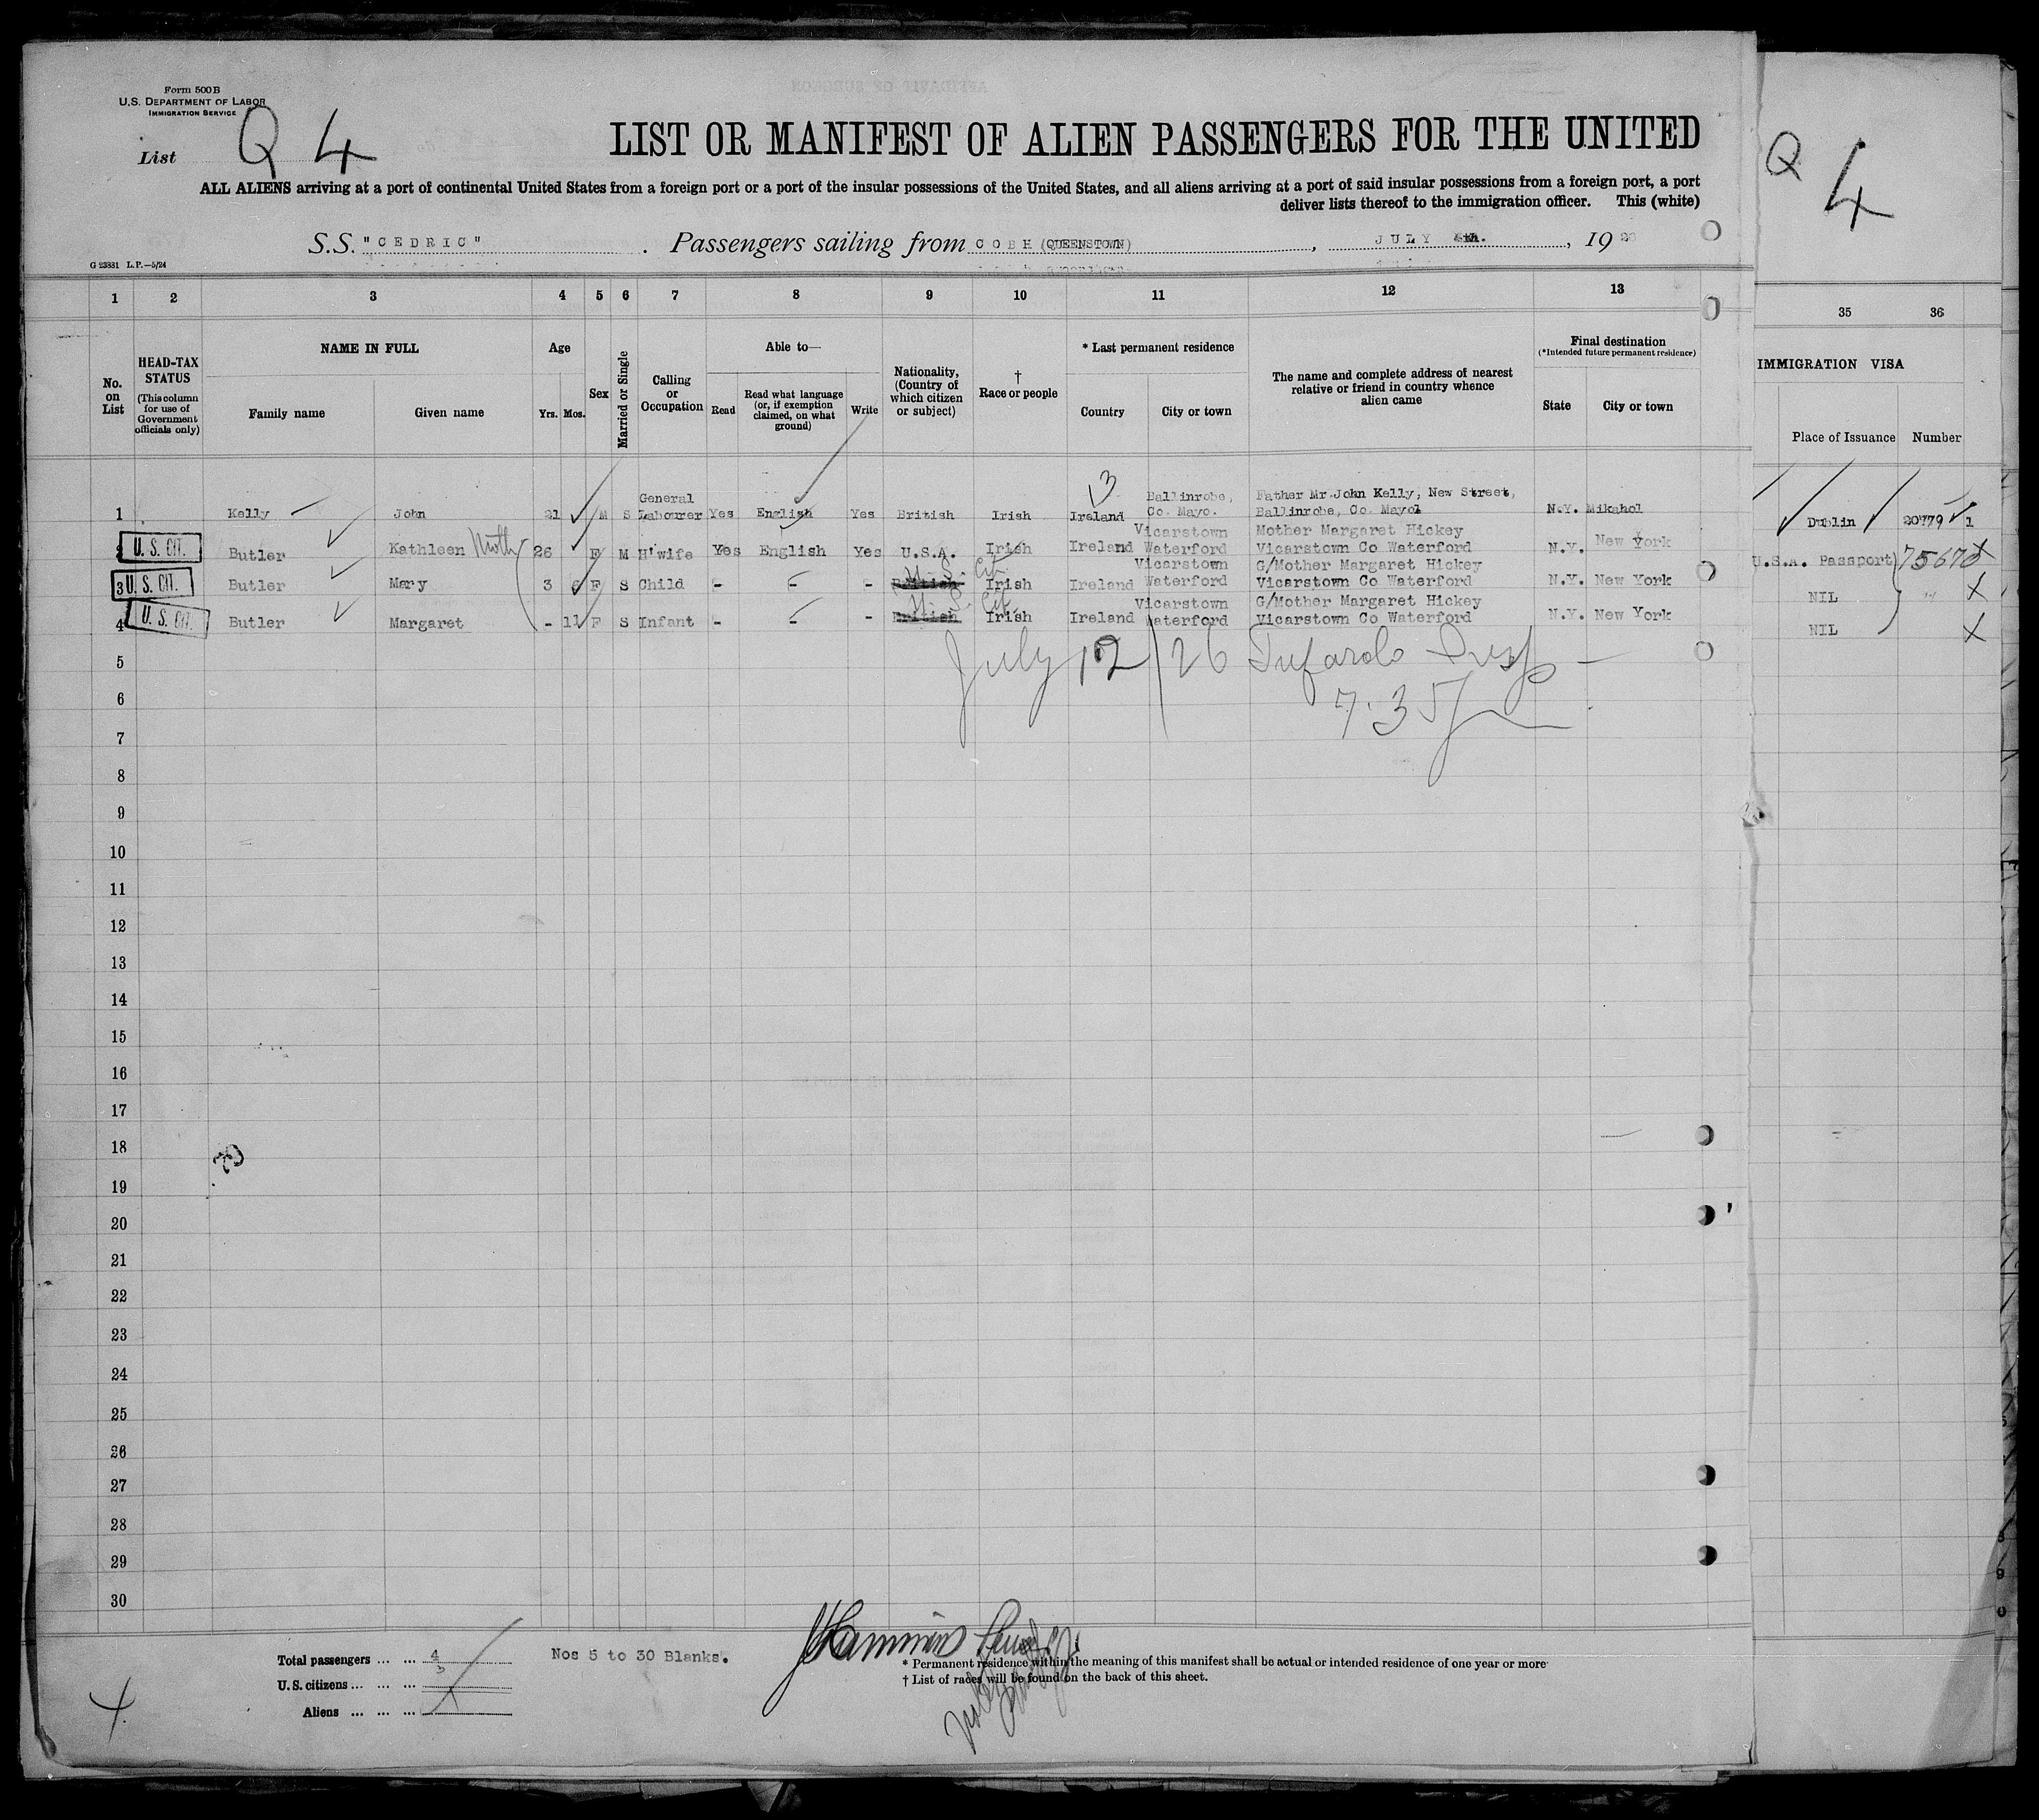 Form 500 B
U.S. DEPARTMENT OF LABOR
IMMIGRATION SERVICE
List Q 4
LIST OR MANIFEST OF ALIEN PASSENGERS FOR THE UNITED
ALL ALIENS arriving at a port of continental United States from a foreign port or a port of the insular possessions of the United States, and all aliens arriving at a port of said insular possessions from a foreign port, a port
deliver lists thereof to the immigration officer. This (white)
S.S. "CEDRIC". Passengers sailing from COBH (QUEENSTOWN), JULY 4th., 1926
G 23831 L.P.—5/24
1 2 3 4 5 6 7 8 9 10 11 12 13
No. on List
HEAD-TAX STATUS (This column for use of Government officials only)
NAME IN FULL
Family name Given name
Age
Yrs. Mos.
Sex
Married or Single
Calling or Occupation
Able to—
Read Read what language (or, if exemption claimed, on what ground) Write
Nationality, (Country of which citizen or subject)
† Race or people
* Last permanent residence
Country City or town
The name and complete address of nearest relative or friend in country whence alien came
Final destination
(*Intended future permanent residence)
State City or town
1 Kelly John 21 M S General Labourer Yes English Yes British Irish Ireland Ballinrobe, Co. Mayo. Father Mr. John Kelly, New Street, Ballinrobe, Co. Mayo N.Y. Mikahol
2 U. S. CIT. Butler Kathleen 26 F M H'wife Yes English Yes U.S.A. Irish Ireland Vicarstown Waterford Mother Margaret Hickey Vicarstown Co Waterford N.Y. New York
3 U. S. CIT. Butler Mary 3 6 F S Child - - - British U.S. Cit. Irish Ireland Vicarstown Waterford G/Mother Margaret Hickey Vicarstown Co Waterford N.Y. New York
4 U. S. CIT. Butler Margaret - 11 F S Infant - - - British U.S. Cit. Irish Ireland Vicarstown Waterford G/Mother Margaret Hickey Vicarstown Co Waterford N.Y. New York
July 12/26
7.35
5
6
7
8
9
10
11
12
13
14
15
16
17
18
19
20
21
22
23
24
25
26
27
28
29
30
Total passengers ... ... 4
U. S. citizens ... ... ... 3
Aliens ... ... ... 1
Nos 5 to 30 Blanks.
* Permanent residence within the meaning of this manifest shall be actual or intended residence of one year or more
† List of races will be found on the back of this sheet.
4
Q 4
35 36
IMMIGRATION VISA
Place of Issuance Number
Dublin 20779 1
U.S.A. Passport 75670
NIL "
NIL